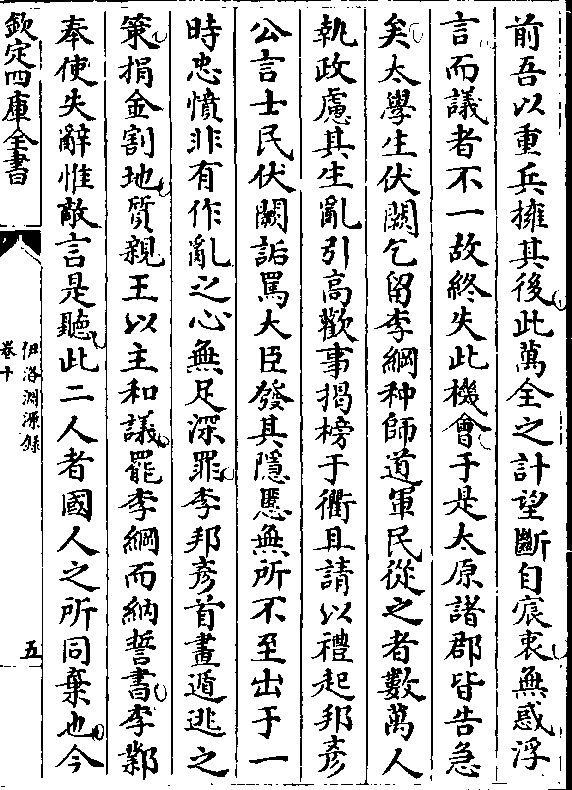 前吾以重兵擁其後此萬全之計望斷自宸衷無惑浮
言而議者不一故終失此機會于是太原諸郡皆告急
矣太學生伏闕乞留李綱种師道軍民從之者數萬人
執政慮其生亂引高歡事揭榜于衢且請以禮起邦彥
公言士民伏闕詬罵大臣發其隱慝無所不至出于一
時忠憤非有作亂之心無足深罪李邦彥首畫遁逃之
策捐金割地質親王以主和議罷李綱而納誓書李鄴
奉使失辭惟敵言是聽此二人者國人之所同棄也今
欽定四庫全書
伊洛淵源錄
卷十
五